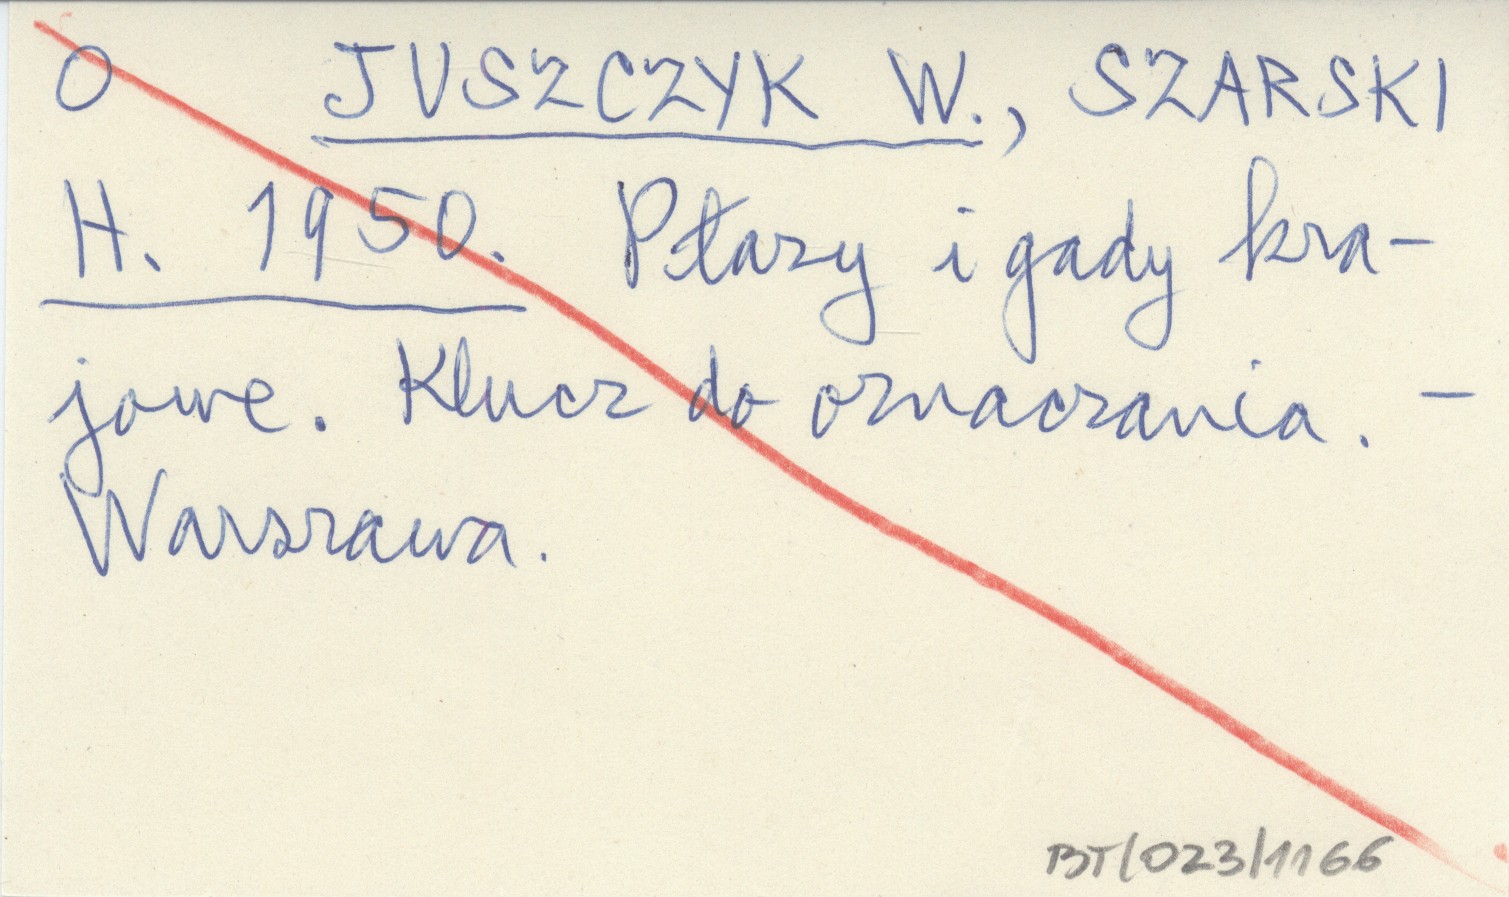 O JUSZCZYK W., SZARSKI
H. 1950. Płazy i gady kra-
jowe. Klucz do oznaczania. -
Warszawa.
BT/023/1166